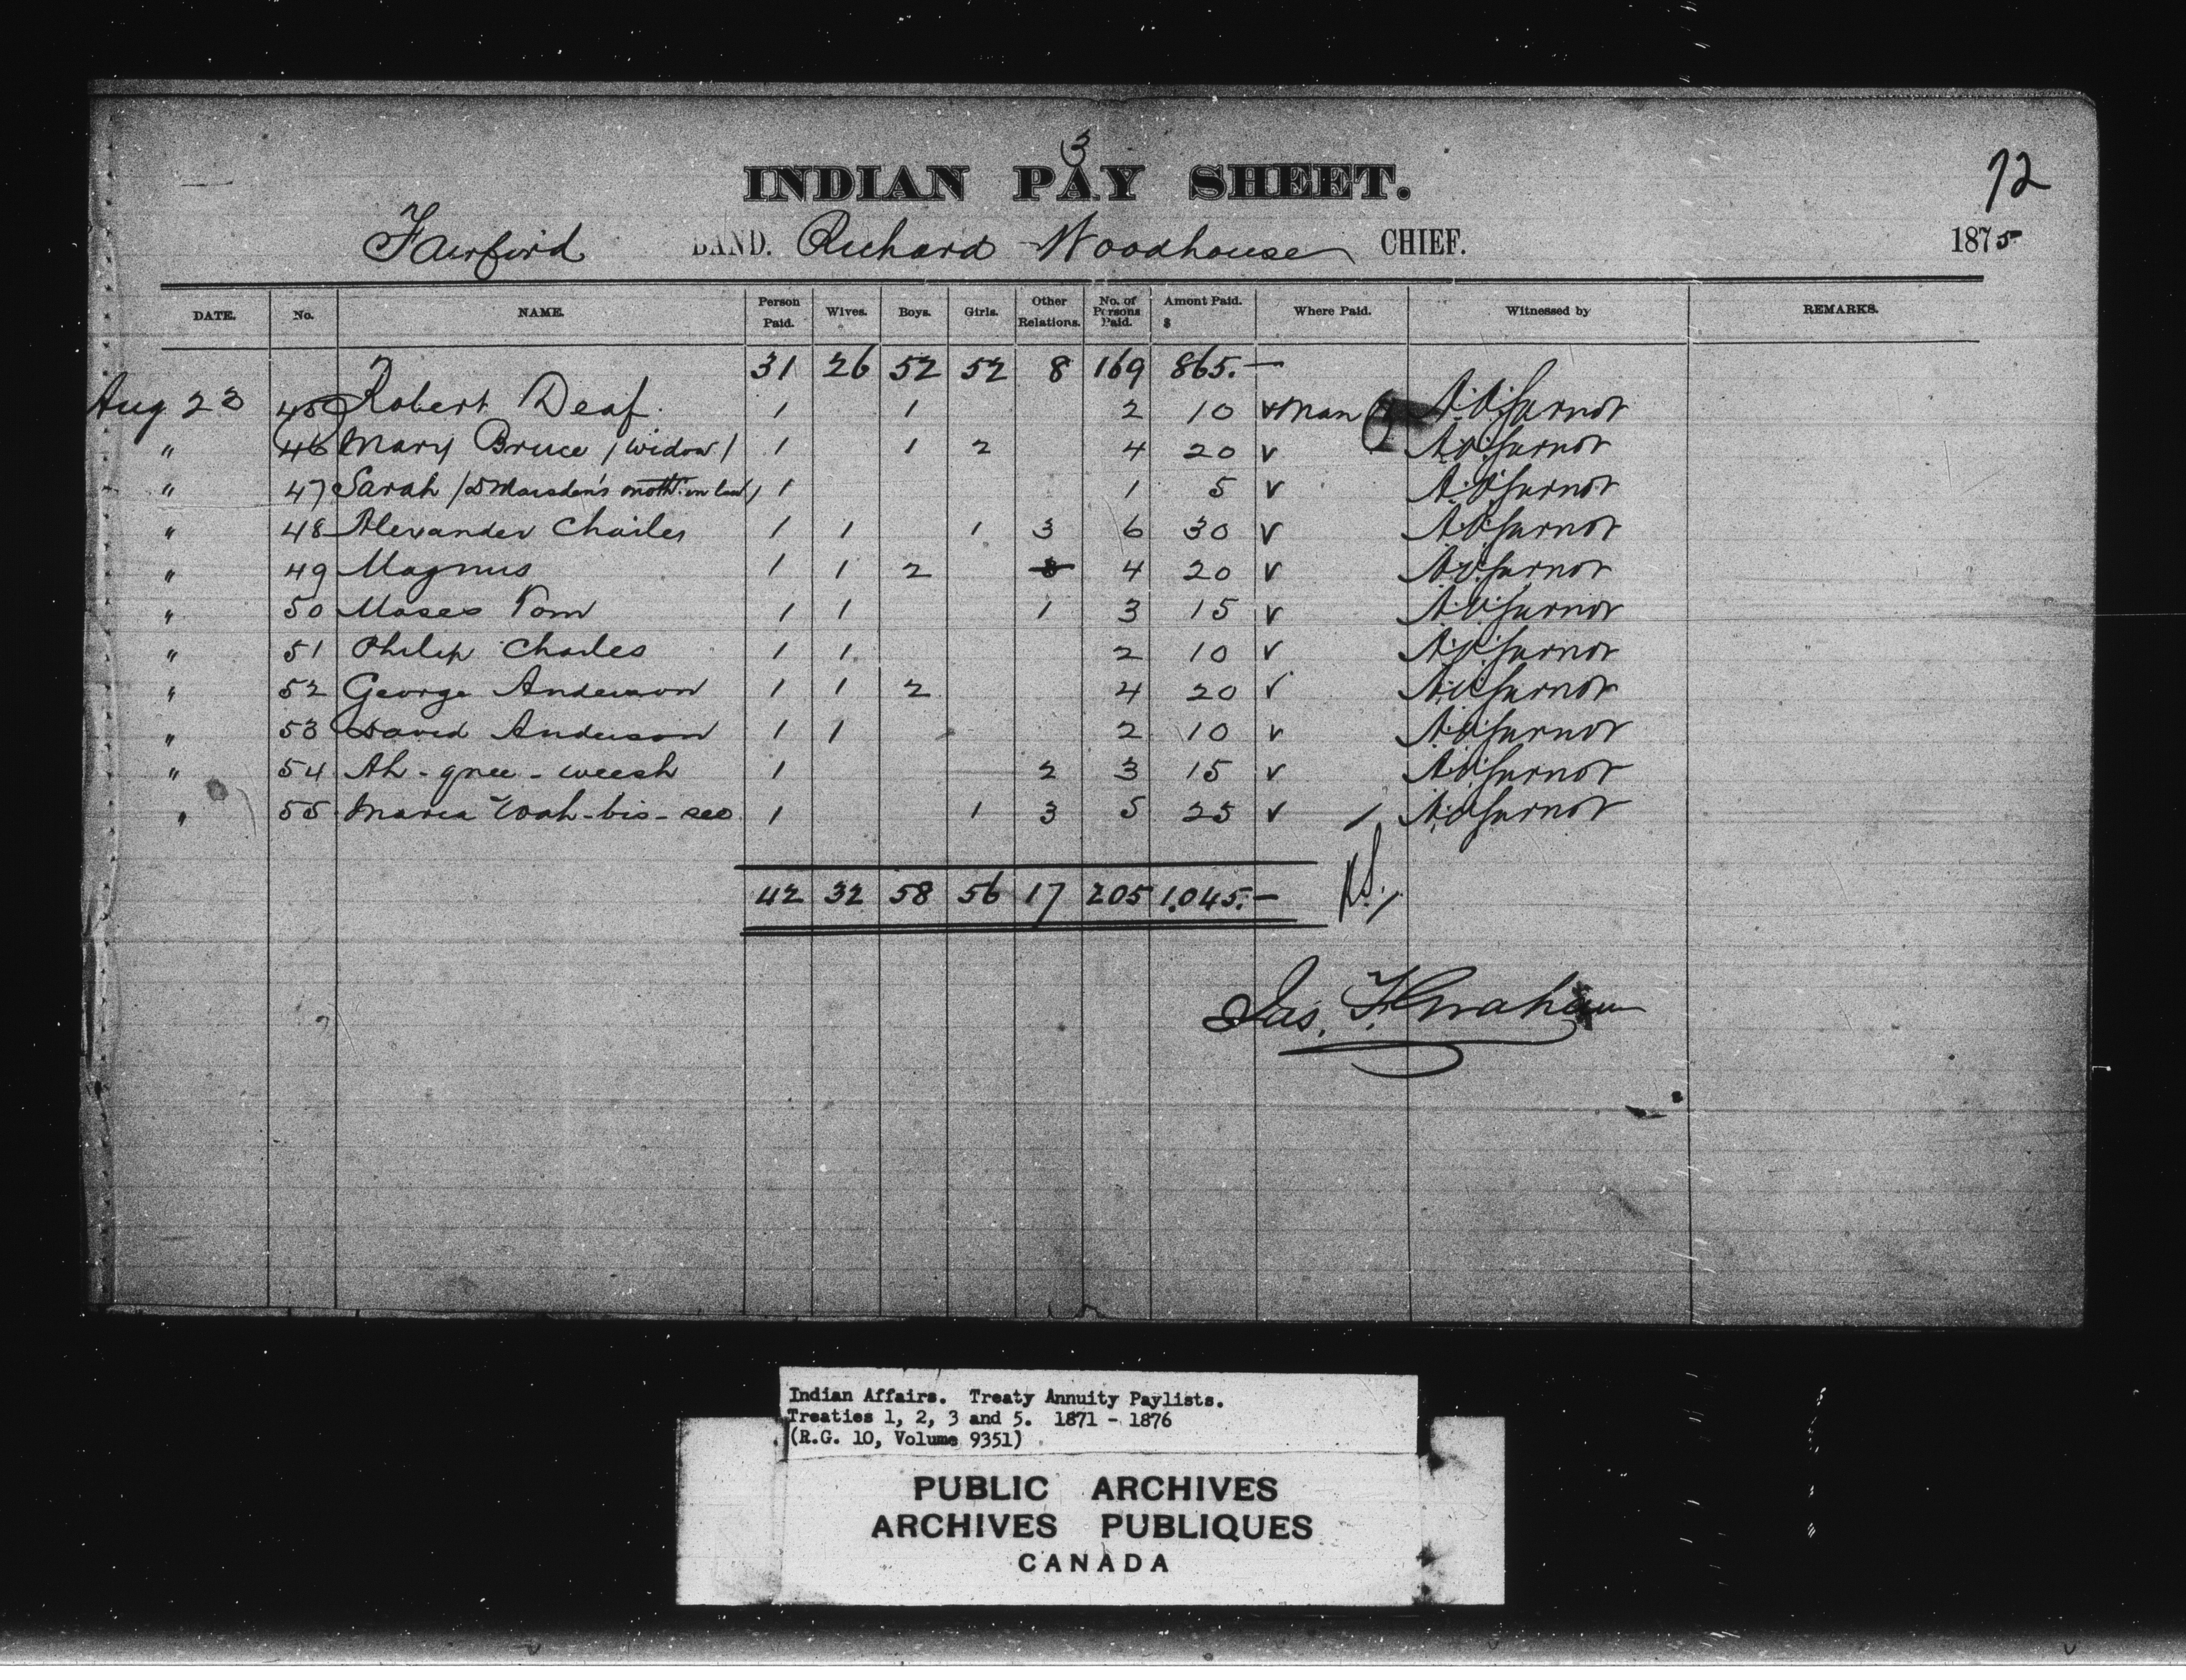 3
INDIAN PAY SHEET.
72
Fairford BAND. Richard Woodhouse CHIEF. 1875
DATE. No. NAME. Person Paid. Wives. Boys. Girls. Other Relations. No. of Persons Paid. Amont Paid. $ Where Paid. Witnessed by REMARKS.
31 26 52 52 8 169 865.—
Aug 23 45 Robert Deaf. 1 1 2 10 v Man
" 46 Mary Bruce / widow / 1 1 2 4 20 v
" 47 Sarah / D Marsden's moth. in law / 1 1 5 v
" 48 Alexander Charles 1 1 1 3 6 30 v
" 49 Magnus 1 1 2 4 20 v
" 50 Moses Tom 1 1 1 3 15 v
" 51 Philip Charles 1 1 2 10 v
" 52 George Anderson 1 1 2 4 20 v
" 53 David Anderson 1 1 2 10 v
" 54 Ah-gnee-weesh 1 2 3 15 v
" 55 Maria Wah-bis-see 1 1 3 5 25 v
42 32 58 56 17 205 1,045.—
Jas. F. Graham
Indian Affairs. Treaty Annuity Paylists.
Treaties 1, 2, 3 and 5. 1871 - 1876
(R.G. 10, Volume 9351)
PUBLIC ARCHIVES
ARCHIVES PUBLIQUES
CANADA